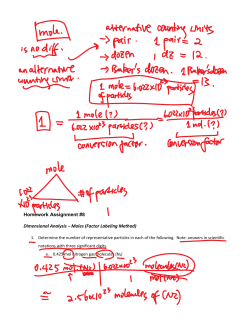 mole.
is no diff.
an alternative
counting units.
alternative counting units
→ pair. 1 pair = 2
→ dozen 1 dz = 12.
→ Baker's dozen. 1 Baker's dozen
= 13.
1 mole = 6.022x10²³ particles
of particles
1 = 1 mole (?) / 6.022 x10²³ particles(?) = 6.022x10²³ particles(?) / 1 mol. (?)
conversion factor. conversion factor
mole
6.022
x10²³ particles
# of particles
1
Homework Assignment #8
Dimensional Analysis – Moles (Factor Labeling Method)
1. Determine the number of representative particles in each of the following. Note: answers in scientific
notations with three significant digits
a. 0.425 mol nitrogen gas molecules (N₂)
0.425 mol. (N₂) 6.022x10²³ molecules (N₂)
1 mol (N₂)
≅ 2.56x10²³ molecules of (N₂)